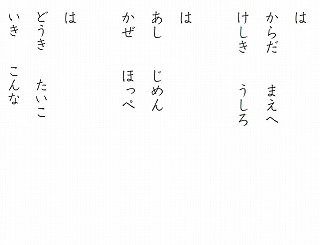 は
からだ　まえへ
けしき　うしろ
は
あし　じめん
かぜ　ほっぺ
は
どうき　たいこ
いき　こんな